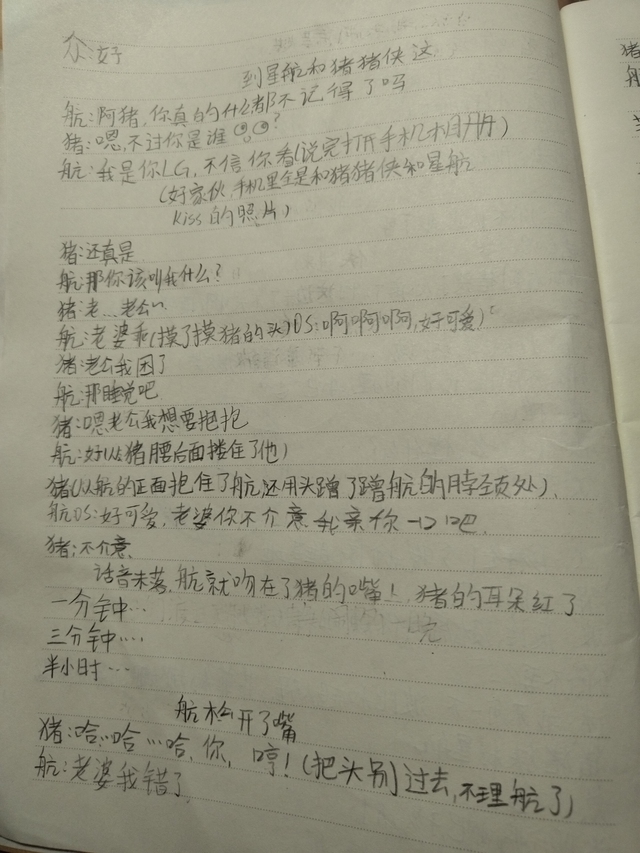 众:好
到星航和猪猪侠这
航:阿猪,你真的什么都不记得了吗
猪:嗯,不过你是谁?
航:我是你LG,不信你看(说完打开手机相册)
(好家伙,手机里全是和猪猪侠和星航
kiss的照片)
猪:还真是
航:那你该叫我什么?
猪:老…老公…
航:老婆乖(摸了摸猪的头)OS:啊啊啊啊,好可爱)
猪:老公我困了
航:那睡觉吧
猪:嗯老公我想要抱抱
航:好(从猪腰后面搂住了他)
猪(从航的正面抱住了航,还用头蹭了蹭航的脖颈处)
航OS:好可爱,老婆你不介意我亲你一口吧
猪:不介意
话音未落,航就吻在了猪的嘴上,猪的耳朵红了
一分钟…
三分钟…
半小时…
航松开了嘴
猪:哈…哈…哈,你,哼!(把头别过去,不理航了)
航:老婆我错了